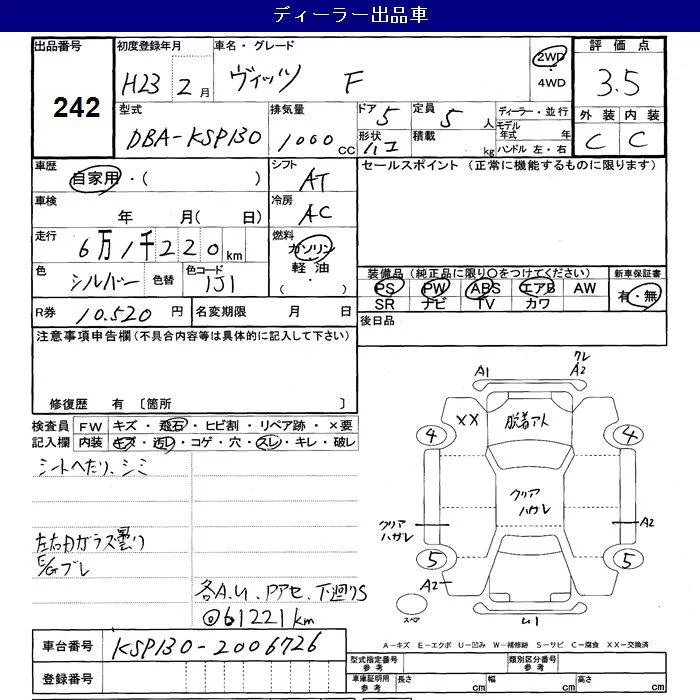 ディーラー出品車
出品番号 初度登録年月 車名・グレード 評価点
242
H23 2月 ヴィッツ F 2WD ・ 4WD 3.5
型式 排気量 ドア 5 定員 5人 ディーラー・並行 外装 内装
DBA-KSP130 1000cc 形状 ハコ 積載 kg モデル年式 年 ハンドル 左・右 C C
車歴 自家用・( ) シフト AT セールスポイント (正常に機能するものに限ります)
車検 年 月( 日) 冷房 AC
走行 6万1千220km 燃料 ガソリン
軽油
( ・ )
色 シルバー 色替 色コード 1J1 装備品(純正品に限り○をつけてください) 新車保証書
PS PW ABS エアB AW 有・無
SR ナビ TV カワ
R券 10.520円 名変期限 月 日 後日品
注意事項申告欄(不具合内容等は具体的に記入して下さい)
修復歴 有 〔箇所 〕
検査員 FW キズ・飛石・ヒビ割・リペア跡・×要
記入欄 内装 キズ・汚レ・コゲ・穴・スレ・キレ・破レ
シートへたり、シミ
左右Fガラス曇り
E/Gブレ
各A.U.Pアセ、下廻りS
@61221km
A1 クレ A2
XX 脱着アト
4 4
クリアハガレ
クリアハガレ A2
5 5
A2
スペア U1
A-キズ E-エクボ U-凹み W-補修跡 S-サビ C-腐食 XX-交換済
車台番号 KSP130-2006726
型式指定番号 参考 類別区分番号 参考
登録番号 車庫証明用 参考 長さ cm 幅 cm 高さ cm